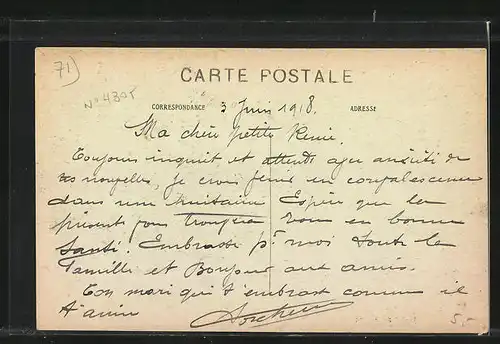 71)
N° 4305
CARTE POSTALE
CORRESPONDANCE
ADRESSE
3 Juin 1918.
Ma chère petite
Toujours inquiet et attends avec de
tes nouvelles, je crois finir en convalescence
dans une Espère que la
présente vous trouvera en bonne
Santé. Embrasse pr moi toute la
famille et Bonjour aux amis.
Ton mari qui t'embrasse comme il
t'aime
5,-